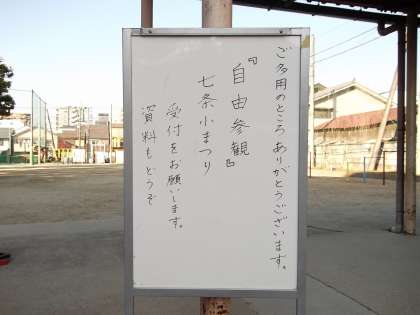 ご多用のところありがとうございます。
『自由参観』
七条小まつり
受付をお願いします。
資料もどうぞ